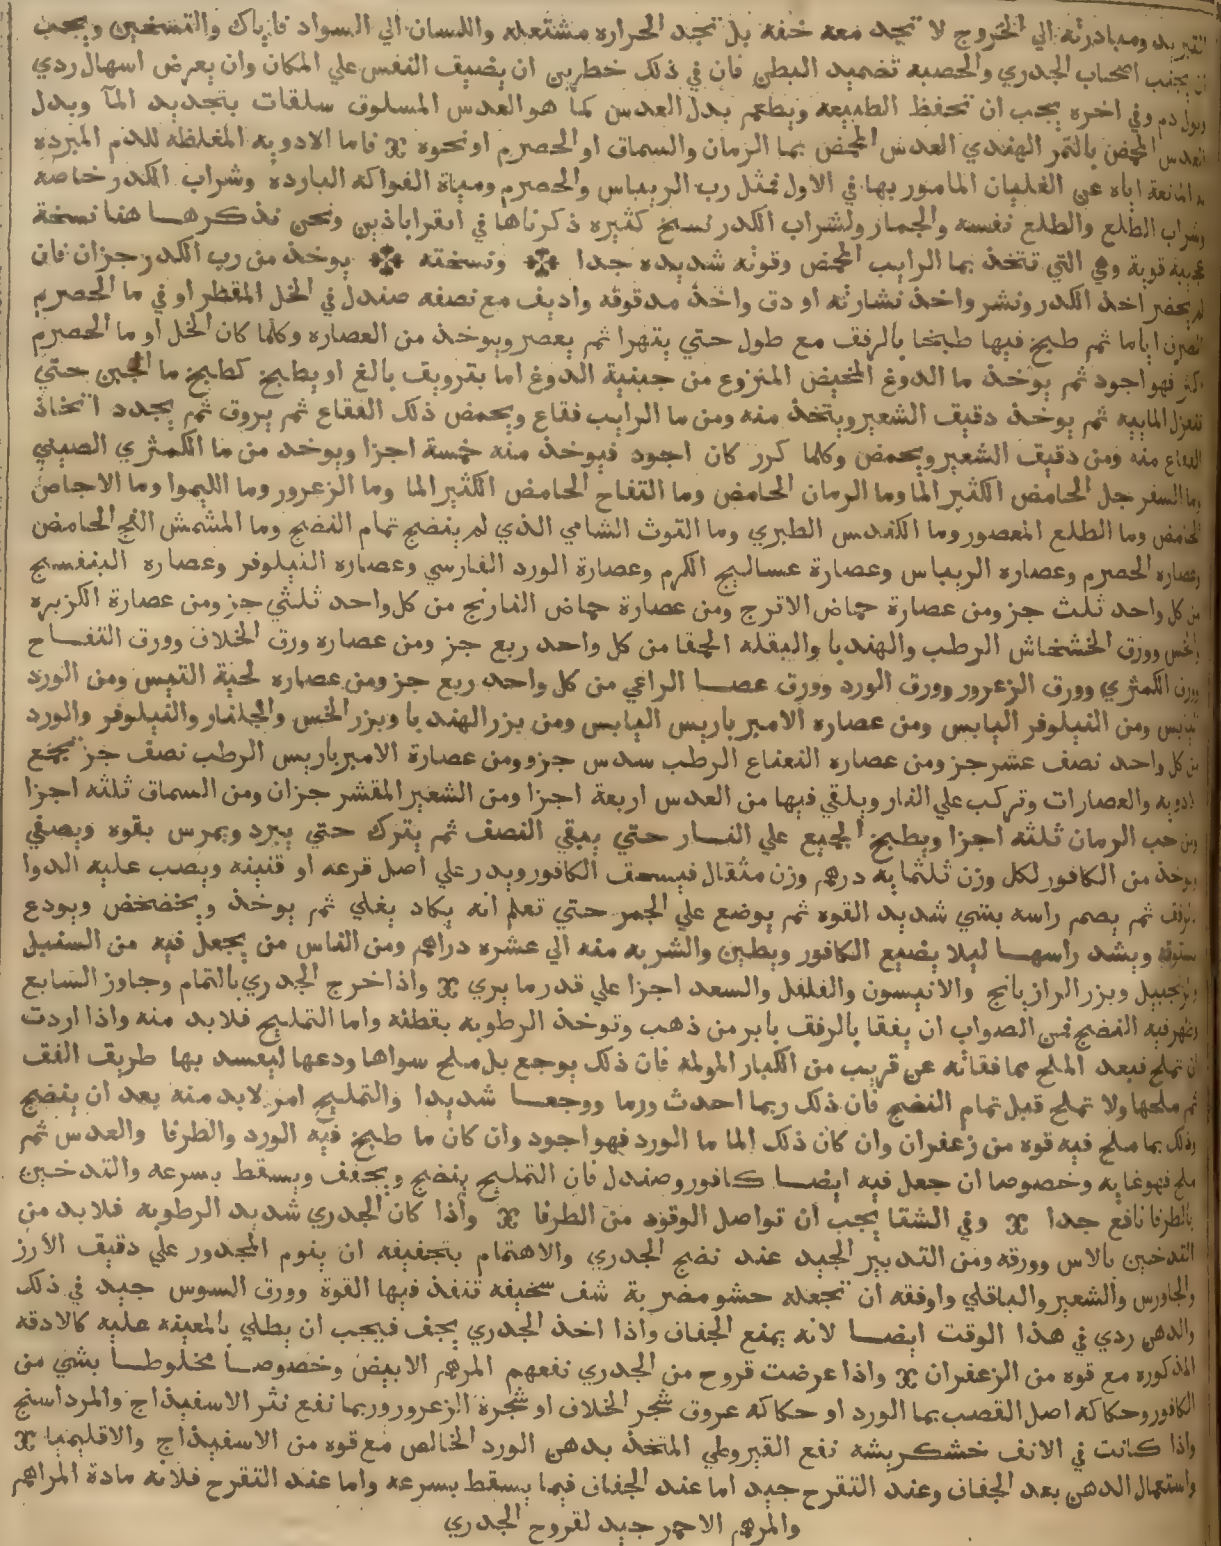 التبريد ومبادرته الي الخروج لا تجد معه خفه بل تجد الحراره مشتعله واللسان الي السواد فاياك والتسخين ويجب
ان يجنب اصحاب الجدري والحصبه تضميد البطن فان في ذلك خطرين ان يضيف النفس علي المكان وان يعرض اسهال ردي
وبول دم وفي اخره يجب ان تحفظ الطبيعه ويطعم بدل العدس كما هو العدس المسلوق سلقات بتجديد المآ وبدل
العدس المحمض بالتمر الهندي العدس المحمض بما الرمان والسماق او الحصرم او نحوه فاما الادويه المغلظه للدم المبرده
له المانعة اياه عن الغليان المامور بها في الاول فمثل رب الريباس والحصرم ومياة الفواكه البارده وشراب الكدر خاصه
وشراب الطلع والطلع نفسه والجمار ولشراب الكدر نسخ كثيره ذكرناها في اقراباذين ونحن نذكرها هنا نسخة
عجيبه قوية وهي التي تتخذ بما الرايب المحمض وقوته شديده جدا ونسخته يوخذ من رب الكدر جزان فان
لم يحضر اخذ الكدر ونشر واخذ نشارته او دق واخذ مدقوقه واديف مع نصفه صندل في الخل المقطر او في ما الحصرم
الصرف اياما ثم طبخ فيها طبخا بالرفق مع طول حتي يتهرا ثم يعصر ويوخذ من العصاره وكلما كان الخل او ما الحصرم
اكثر فهو اجود ثم يوخذ ما الدوغ المخيض المنزوع من جبنية الدوغ اما بترويق بالغ او بطبخ كطبخ ما الجبن حتي
تنعزل الماييه ثم يوخذ دقيق الشعير ويتخذ منه ومن ما الرايب فقاع ويحمض ذلك الفقاع ثم يروق ثم يجدد اتخاذ
الفقاع منه ومن دقيق الشعير ويحمض وكلما كرر كان اجود فيوخذ منه خمسة اجزا ويوخد من ما الكمثري الصيني
وما السفرجل الحامض الكثير الما وما الرمان الحامض وما التفاح الحامض الكثير الما وما الزعرور وما الليموا وما الاجاص
الحامض وما الطلع المعصور وما الكندس الطبري وما التوث الشامي الذي لم ينضج تمام النضج وما المشمش الفج الحامض
وعصاره الحصرم وعصاره الريباس وعصارة عساليج الكرم وعصارة الورد الفارسي وعصاره النيلوفر وعصاره البنفسج
من كل واحد ثلث جز ومن عصارة حماض الاترج ومن عصارة حماض النارنج من كل واحد ثلثي جز ومن عصارة الكزبره
والخس وورق الخشخاش الرطب والهندبا والبقله الحمقا من كل واحد ربع جز ومن عصاره ورق الخلاف وورق التفاح
وورق الكمثري وورق الزعرور وورق الورد وورق عصا الراعي من كل واحد ربع جز ومن عصاره لحية التيس ومن الورد
اليابس ومن النيلوفر اليابس ومن عصاره الامير باريس اليابس ومن بزر الهندبا وبزر الخس والجلنار والنيلوفر والورد
من كل واحد نصف عشر جز ومن عصاره النعناع الرطب سدس جزو ومن عصارة الاميرباريس الرطب نصف جز يجمع
الادويه والعصارات وتركب علي النار ويلقي فيها من العدس اربعة اجزا ومن الشعير المقشر جزان ومن السماق ثلثه اجزا
ومن حب الرمان ثلثه اجزا ويطبخ الجميع علي النار حتي يبقي النصف ثم يترك حتي يبرد ويمرس بقوه ويصفي
ويوخذ من الكافور لكل وزن ثلثمايه درهم وزن مثقال فيسحق الكافور ويدر علي اصل قرعه او قنينه ويصب عليه الدوا
بالرفق ثم يصمم راسه بشي شديد القوه ثم يوضع علي الجمر حتي تعلم انه يكاد يغلي ثم يوخذ ويخضخض ويودع
بستوقه ويشد راسها ليلا يضيع الكافور ويطين والشربه منه الي عشره دراهم ومن الناس من يجعل فيه من السنبل
والزجبيل وبزر الرازيانج والانيسون والفلفل والسعد اجزا علي قدر ما يري واذا خرج الجدري بالتمام وجاوز السابع
وظهر فيه النضج فمن الصواب ان يفقا بالرفق بابر من ذهب وتوخذ الرطوبه بقطنه واما التمليح فلا بد منه واذا اردت
ان تملح فبعد الملح مما فقاته عن قريب من الكبار المولمة فان ذلك يوجع بل ملح سواها ودعها ليفسد بها طريق الفق
ثم ملحها ولا تملح قبل تمام النضج فان ذلك ربما احدث ورما ووجعا شديدا والتمليح امر لابد منه بعد ان ينضج
وذلك بما ملح فيه قوه من زعفران وان كان ذلك الما ما الورد فهو اجود وان كان ما طبخ فيه الورد والطرفا والعدس ثم
ملح فهو غايه وخصوصا ان جعل فيه ايضا كافور وصندل فان التمليح ينضج ويجفف ويسقط بسرعه والتدخين
بالطرفا نافع جدا وفي الشتا يجب ان تواصل الوقود من الطرفا واذا كان الجدري شديد الرطوبه فلا بد من
التدخين بالاس وورقه ومن التدبير الجيد عند نضج الجدري والاهتمام بتجفيفه ان ينوم المجدور علي دقيق الارز
والجاورس والشعير والباقلي واوفقه ان تجعله حشو مضربة شف سخيفه تنفذ فيها القوة وورق السوس جيد في ذلك
والدهن ردي في هذا الوقت ايضا لانه يمنع الجفاف واذا اخذ الجدري يجف فيجب ان يطلي بالمعينه عليه كالادقه
المذكوره مع قوه من الزعفران واذا عرضت قروح من الجدري نفعهم المرهم الابيض وخصوصا مخلوطا بشي من
الكافور وحكاكه اصل القصب بما الورد او حكاكه عروق شجر الخلاف او شجرة الزعرور وربما نفع نثر الاسفيداج والمرداسنج
واذا كانت في الانف خشكريشه نفع القيروطي المتخذ بدهن الورد الخالص مع قوه من الاسفيداج والاقليميا
واستعمال الدهن بعد الجفاف وعند التقرح جيد اما عند الجفاف فيما يسقط بسرعه واما عند التقرح فلانه مادة المراهم
والمرهم الاحمر جيد لقروح الجدري